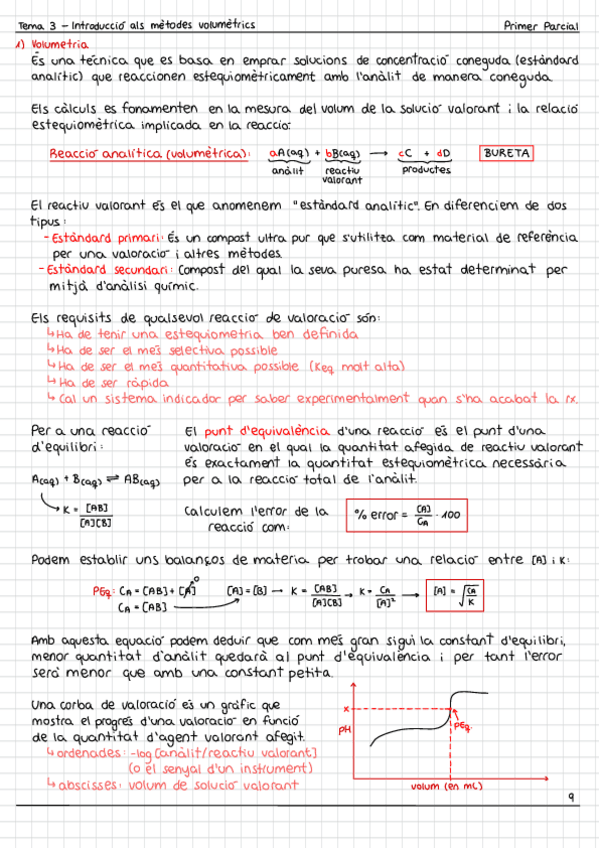 Tema 3 – Introducció als mètodes volumètrics Primer Parcial
1) Volumetria
És una tècnica que es basa en emprar solucions de concentració coneguda (estàndard
analític) que reaccionen estequiomètricament amb l'anàlit de manera coneguda.
Els càlculs es fonamenten en la mesura del volum de la solució valorant i la relació
estequiomètrica implicada en la reacció:
Reacció analítica (volumètrica): aA(aq) + bB(aq) → cC + dD BURETA
anàlit reactiu productes
valorant
El reactiu valorant és el que anomenem "estàndard analític". En diferenciem de dos
tipus:
- Estàndard primari: És un compost ultra pur que s'utilitza com material de referència
per una valoració i altres mètodes.
- Estàndard secundari: Compost del qual la seva puresa ha estat determinat per
mitjà d'anàlisi químic.
Els requisits de qualsevol reacció de valoració són:
↳ Ha de tenir una estequiometria ben definida
↳ Ha de ser el més selectiva possible
↳ Ha de ser el més quantitativa possible (Keq molt alta)
↳ Ha de ser ràpida
↳ Cal un sistema indicador per saber experimentalment quan s'ha acabat la rx.
Per a una reacció
d'equilibri:
A(aq) + B(aq) ⇌ AB(aq)
K = [AB] / [A][B]
El punt d'equivalència d'una reacció és el punt d'una
valoració en el qual la quantitat afegida de reactiu valorant
és exactament la quantitat estequiomètrica necessària
per a la reacció total de l'anàlit.
Calculem l'error de la
reacció com:
% error = [A] / CA · 100
Podem establir uns balanços de matèria per trobar una relació entre [A] i K:
PEq: CA = [AB] + [A] 0 [A] = [B] → K = [AB] / [A][B] → K = CA / [A]² → [A] = √(CA / K)
CA = [AB]
Amb aquesta equació podem deduir que com més gran sigui la constant d'equilibri,
menor quantitat d'anàlit quedarà al punt d'equivalència i per tant l'error
serà menor que amb una constant petita.
Una corba de valoració és un gràfic que
mostra el progrés d'una valoració en funció
de la quantitat d'agent valorant afegit.
↳ ordenades: -log[anàlit/reactiu valorant]
(o el senyal d'un instrument)
↳ abscisses: volum de solució valorant
x
pH
PEq.
volum (en mL)
9